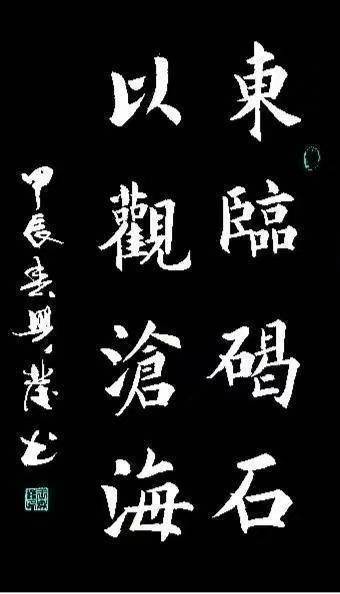 東臨碣石
以觀滄海
甲辰春興